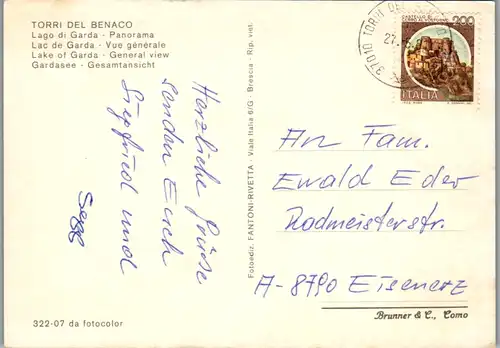 TORRI DEL BENACO
Lago di Garda - Panorama
Lac de Garda - Vue générale
Lake of Garda - General view
Gardasee - Gesamtansicht
Herzliche Grüsse
senden Euch
Siegfried und
Sepp
322-07 da fotocolor
Fotoediz. FANTONI-RIVETTA - Viale Italia 6/G - Brescia - Rip. viet.
37010 TORRI DEL
27.
CASTELLO
200
ITALIA
An Fam.
Ewald Eder
Rodmeisterstr.
A-8790 Eisenerz
Brunner & C., Como